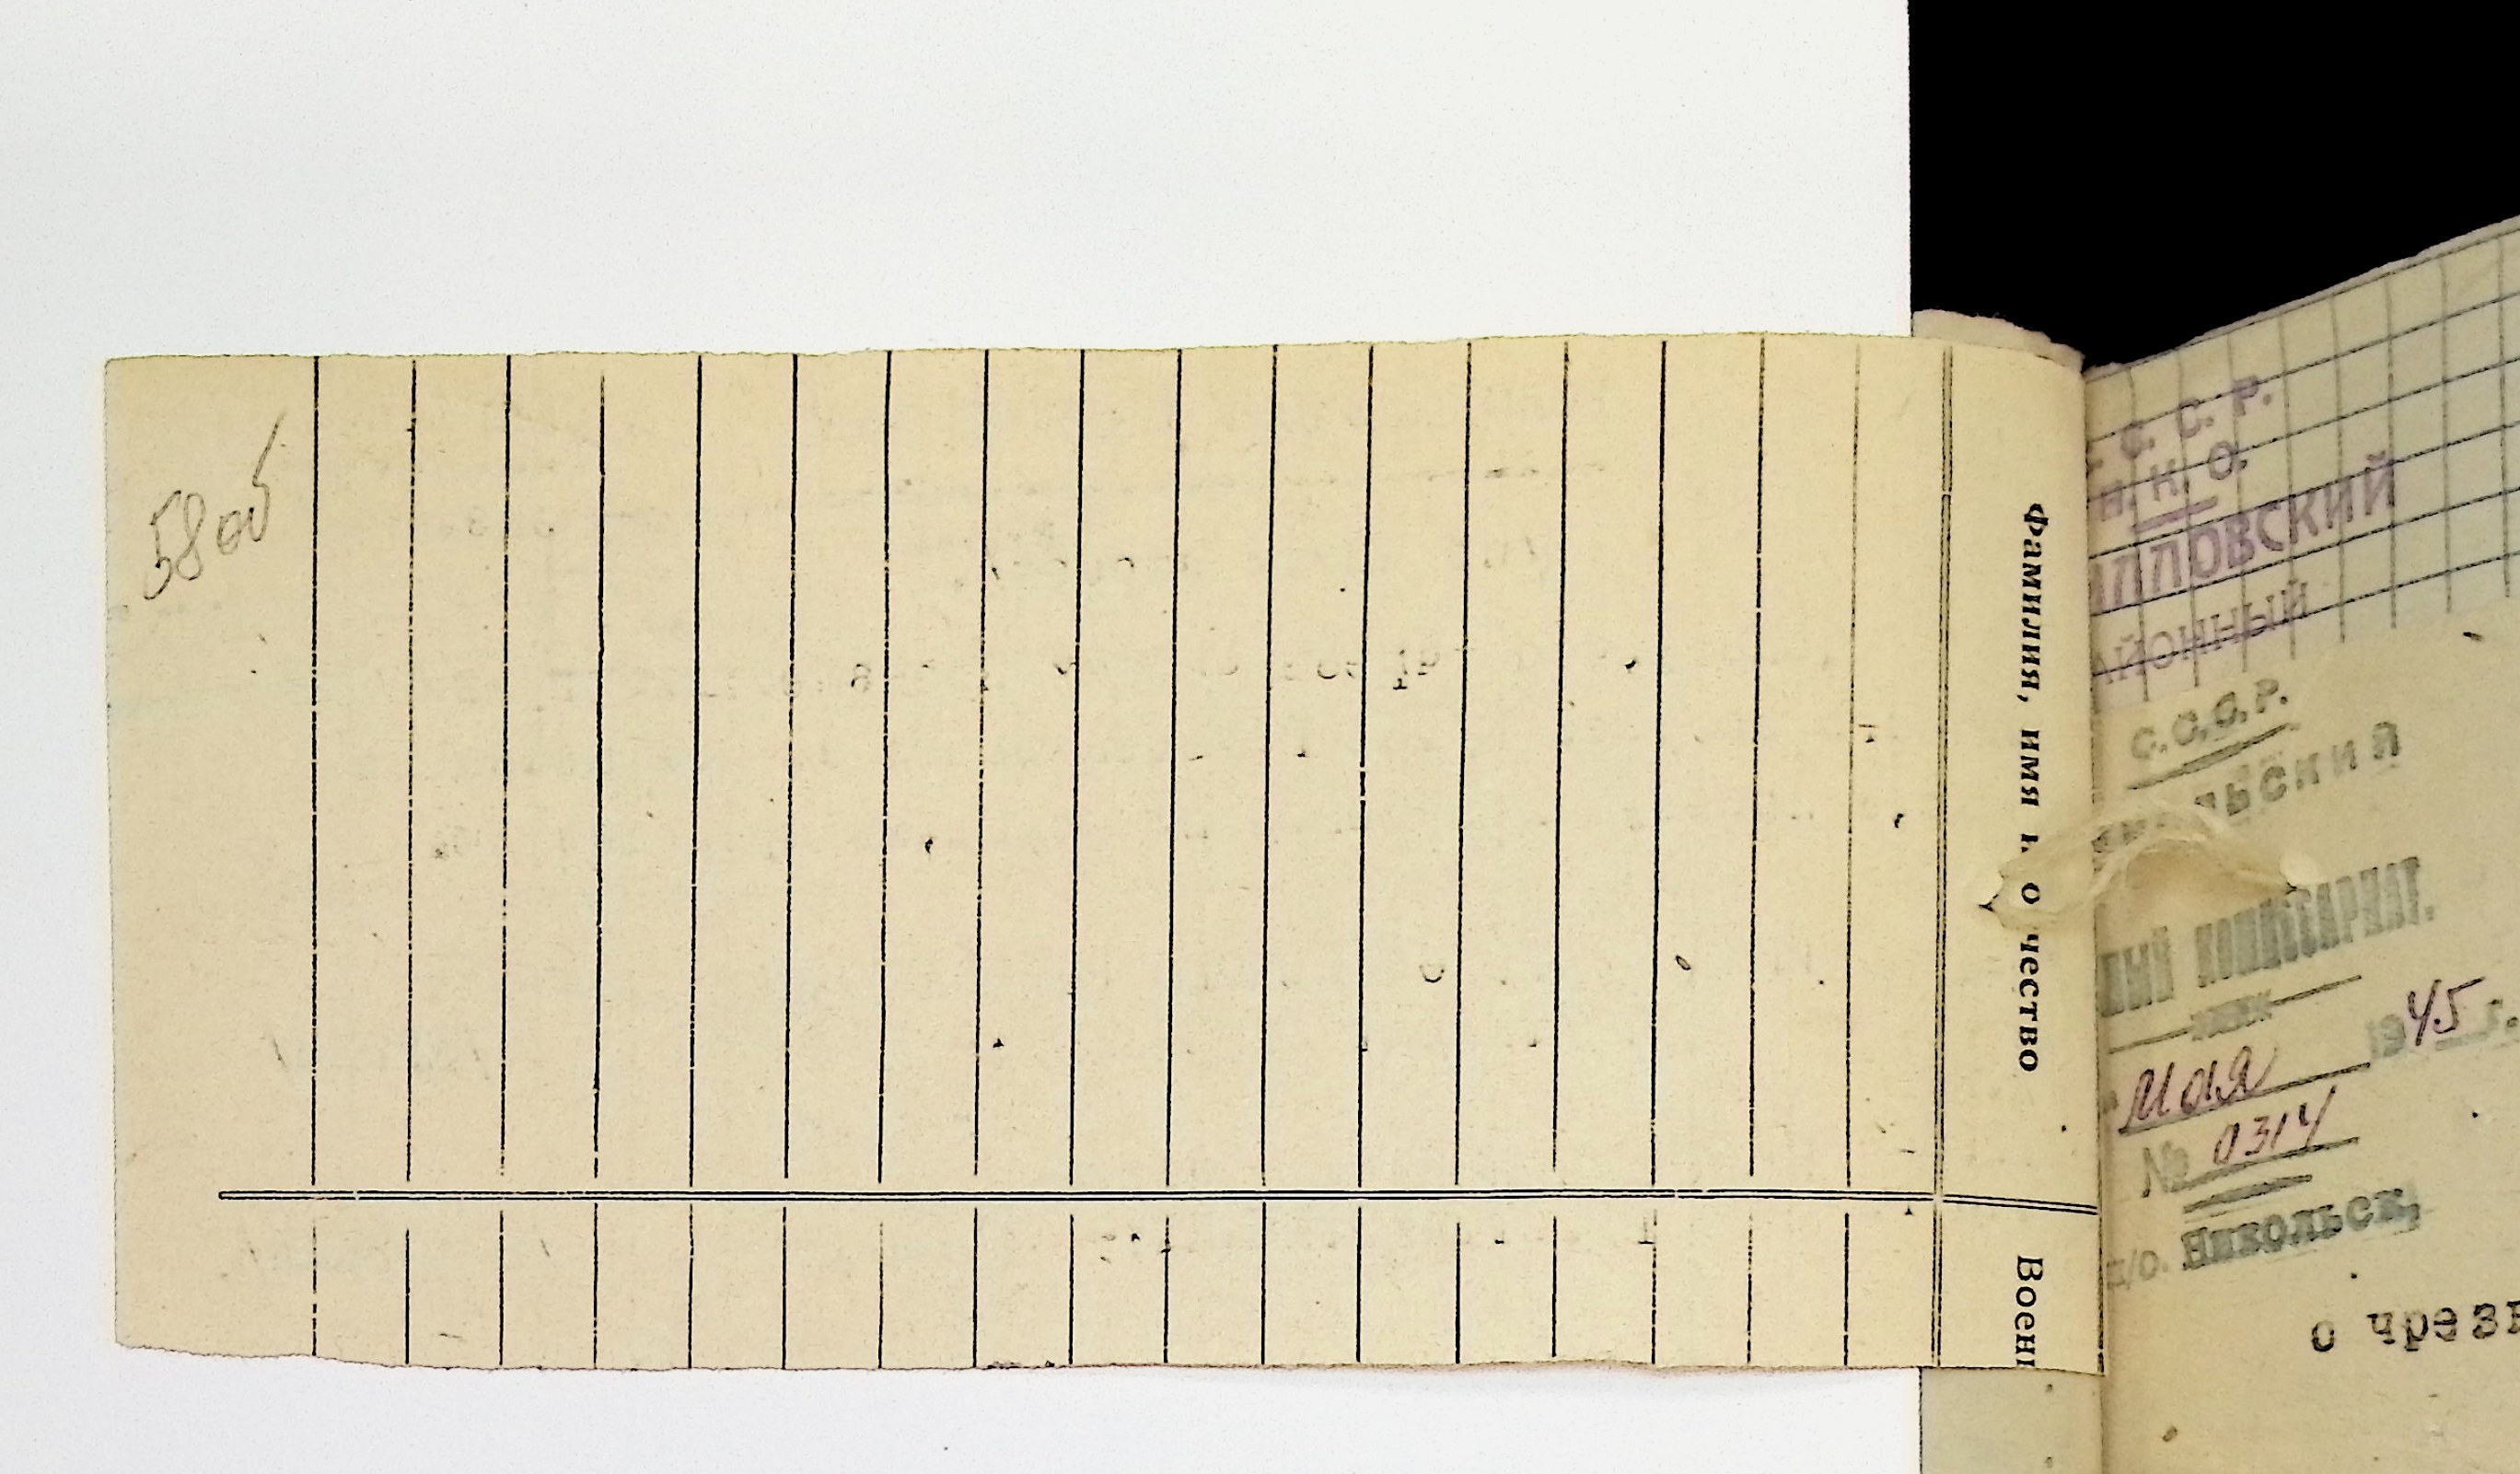 58 об
Фамилия, имя и о чество
Военн
С. С. Р.
Н. К. О.
ИЛЛОВСКИЙ
АЙОННЫЙ
С.С.С.Р.
ЫЙ КОМИССАРИАТ.
1945 г.
" мая
№ 0314
п/о. Никольск,
о чрезв